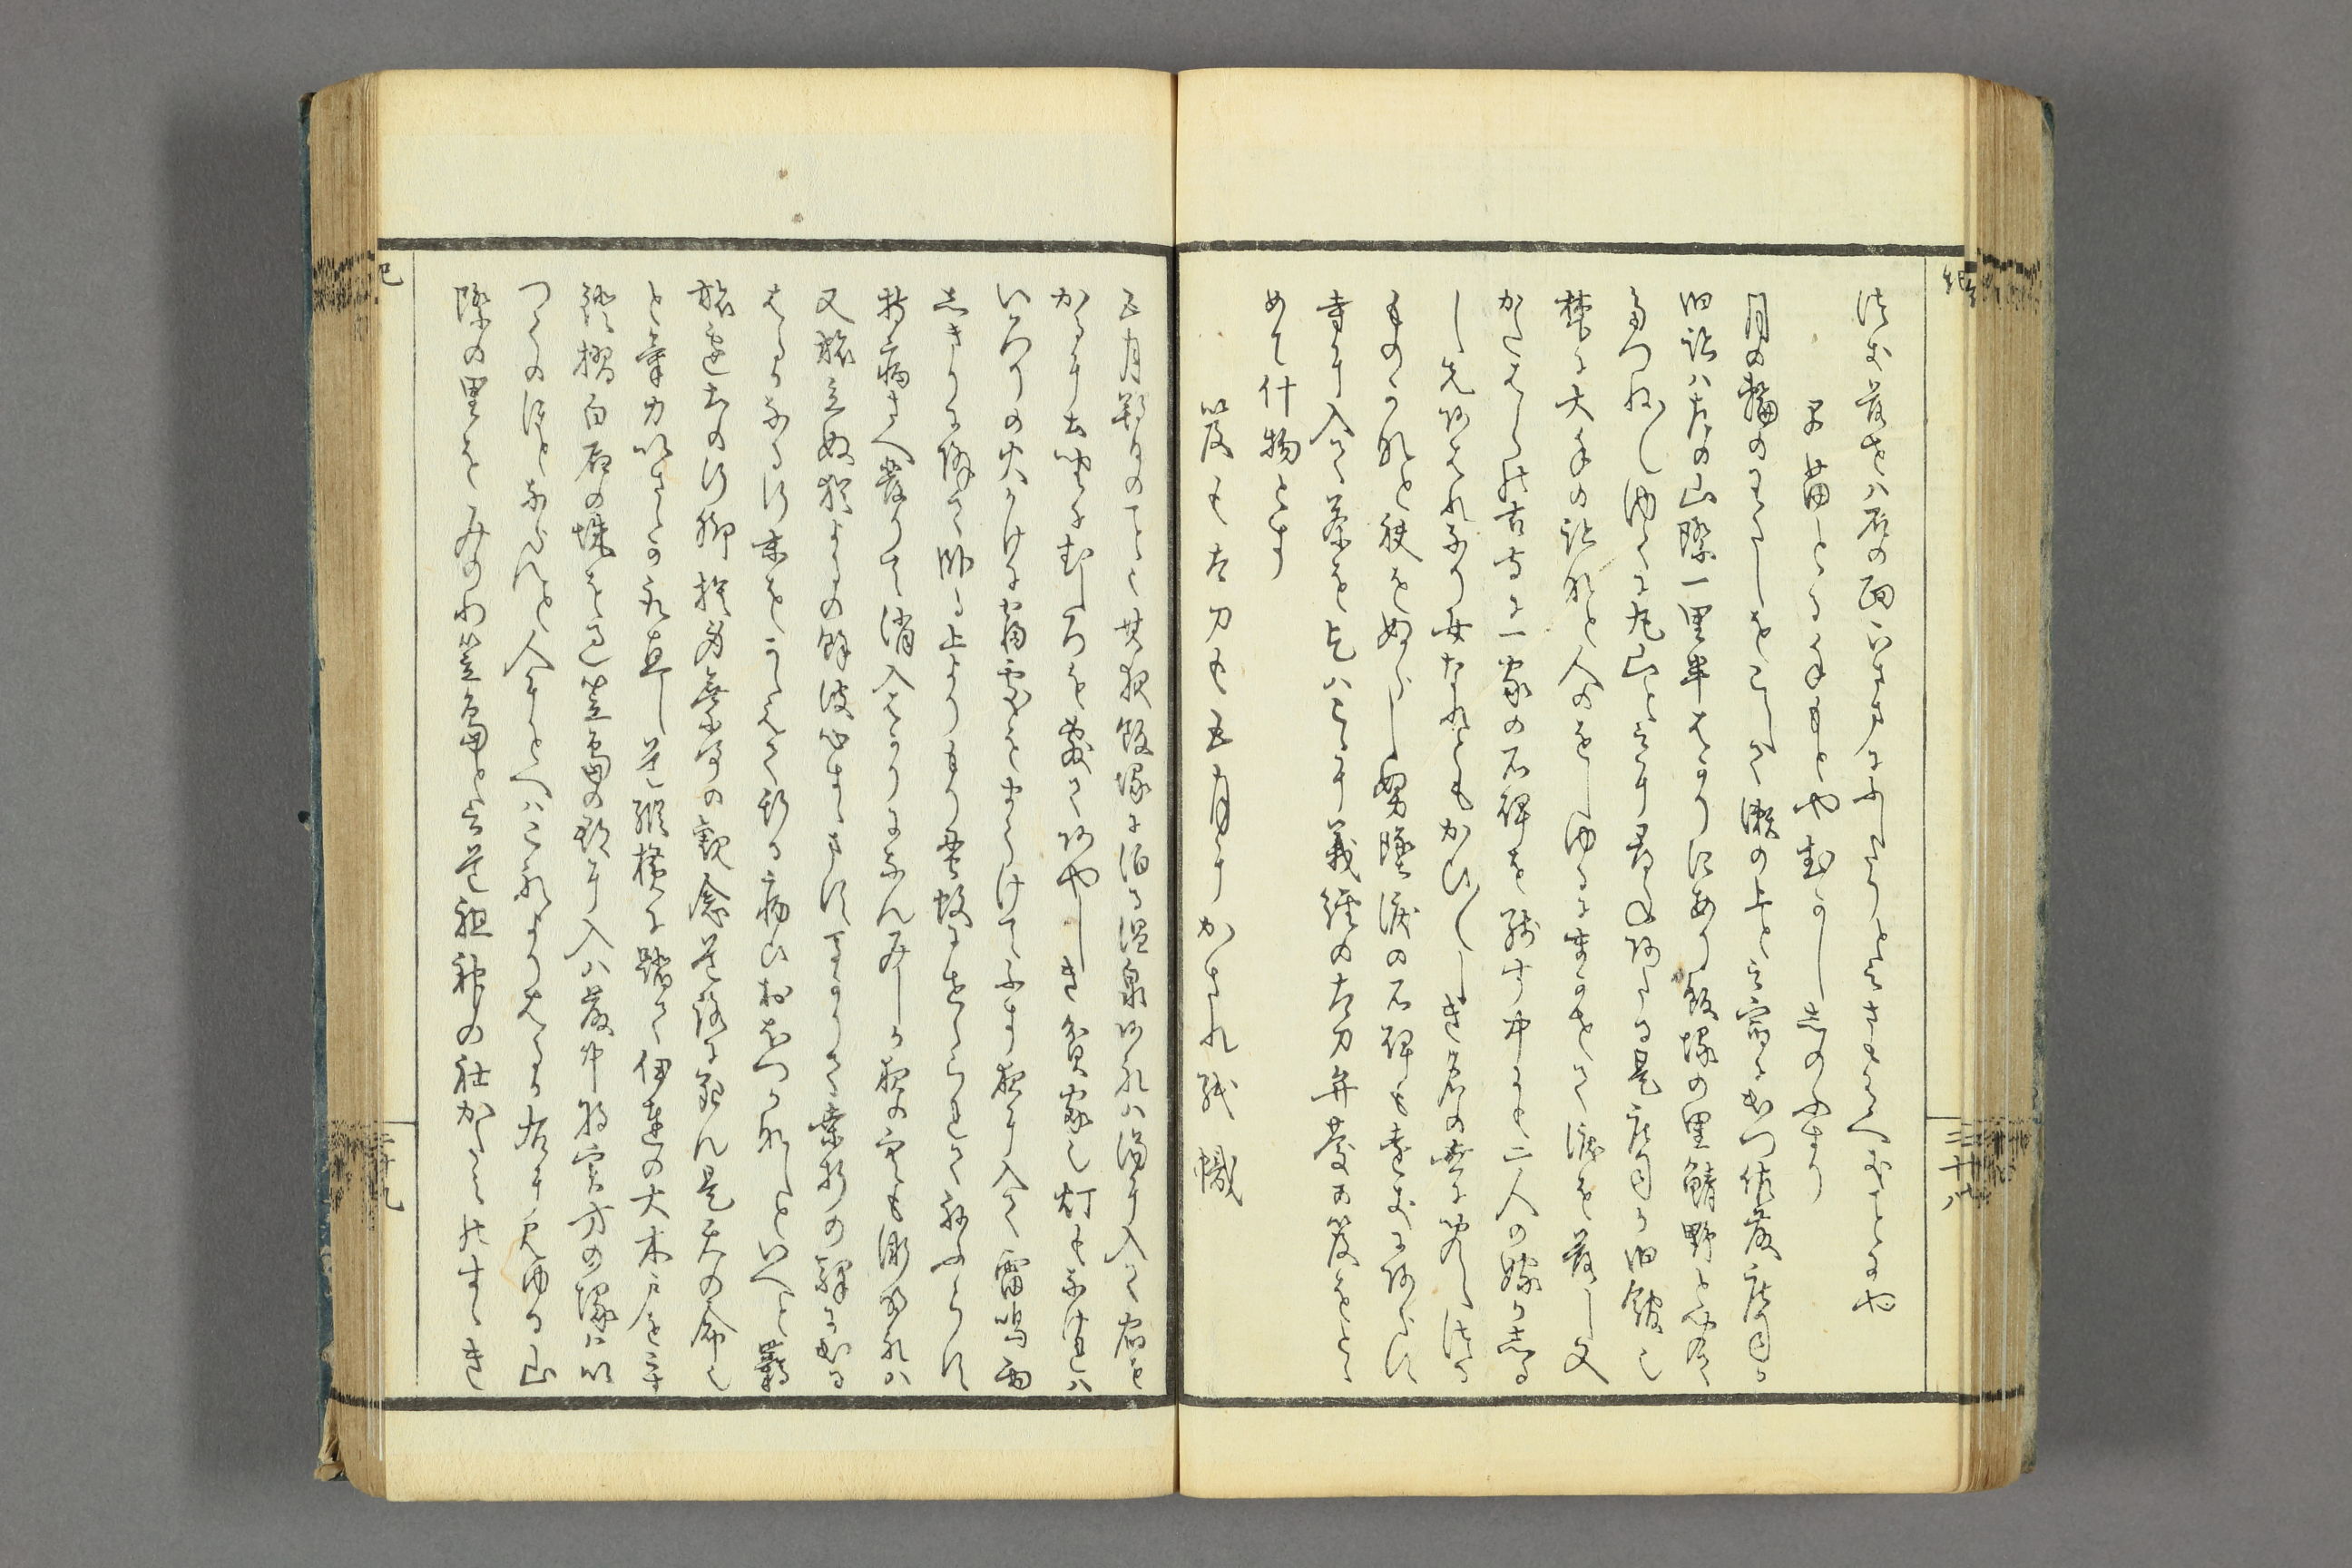 紀
三十八
つき落せハ石の面下さまにふしたりと云さもあるへきことにや
早苗とる手もとやむかし志のふすり
月の輪のわたしをこして瀬の上と云宿に出つ佐藤庄司か
旧跡ハ左の山際一里半はかりにあり飯塚の里鯖野と聞て
尋つね〳〵ゆくに丸山と云に尋ねあたる是庄司か旧館也
梺に大手の跡なと人のをしゆるにまかせて涙を落し又
かたはらの古寺に一家の石碑を残す中にも二人の嫁か志る
し先あはれなり女なれともかひ〳〵しき名の世に聞へつる
ものかなと袂をぬらし墮涙の石碑も遠きにあらす
寺に入て茶を乞ハこゝに義経の太刀弁慶か笈をとゝ
めて什物とす
笈も太刀も五月にかされ紙幟
五月朔日のこと也其夜飯塚に泊る温泉あれハ湯に入て宿を
かるに土坐にむしろを敷てあやしき貧家也灯もなけれハ
いろりの火かけに寝所をまうけてふす夜に入て雷鳴雨
志きりに降て臥る上よりもり蚤蚊にせゝられてねふらす
持病さへ發りて消入はかりになんみしか夜の空も漸明れハ
又旅立ぬ猶よるの餘波心すゝます馬かりて桑折の驛に出る
はるかなる行末をかゝえて斯る病ひおほつかなしといへと羈
旅邊土の行脚捨身無常の観念道路に死ん是天の命也
と氣力いさゝか取直し道縦横に踏て伊達の大木戸をこす
鐙摺白石の城を過笠島の郡に入ハ藤中将実方の塚はい
つくのほとならんと人にとへハこれよりはるか右に見ゆる山
際の里をみのわ笠島と云道祖神の社かたみのすゝき